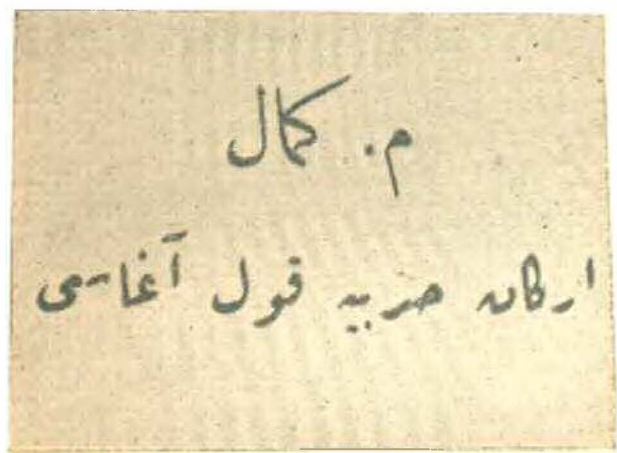 م. كمال
اركان حربيه قول آغاسى